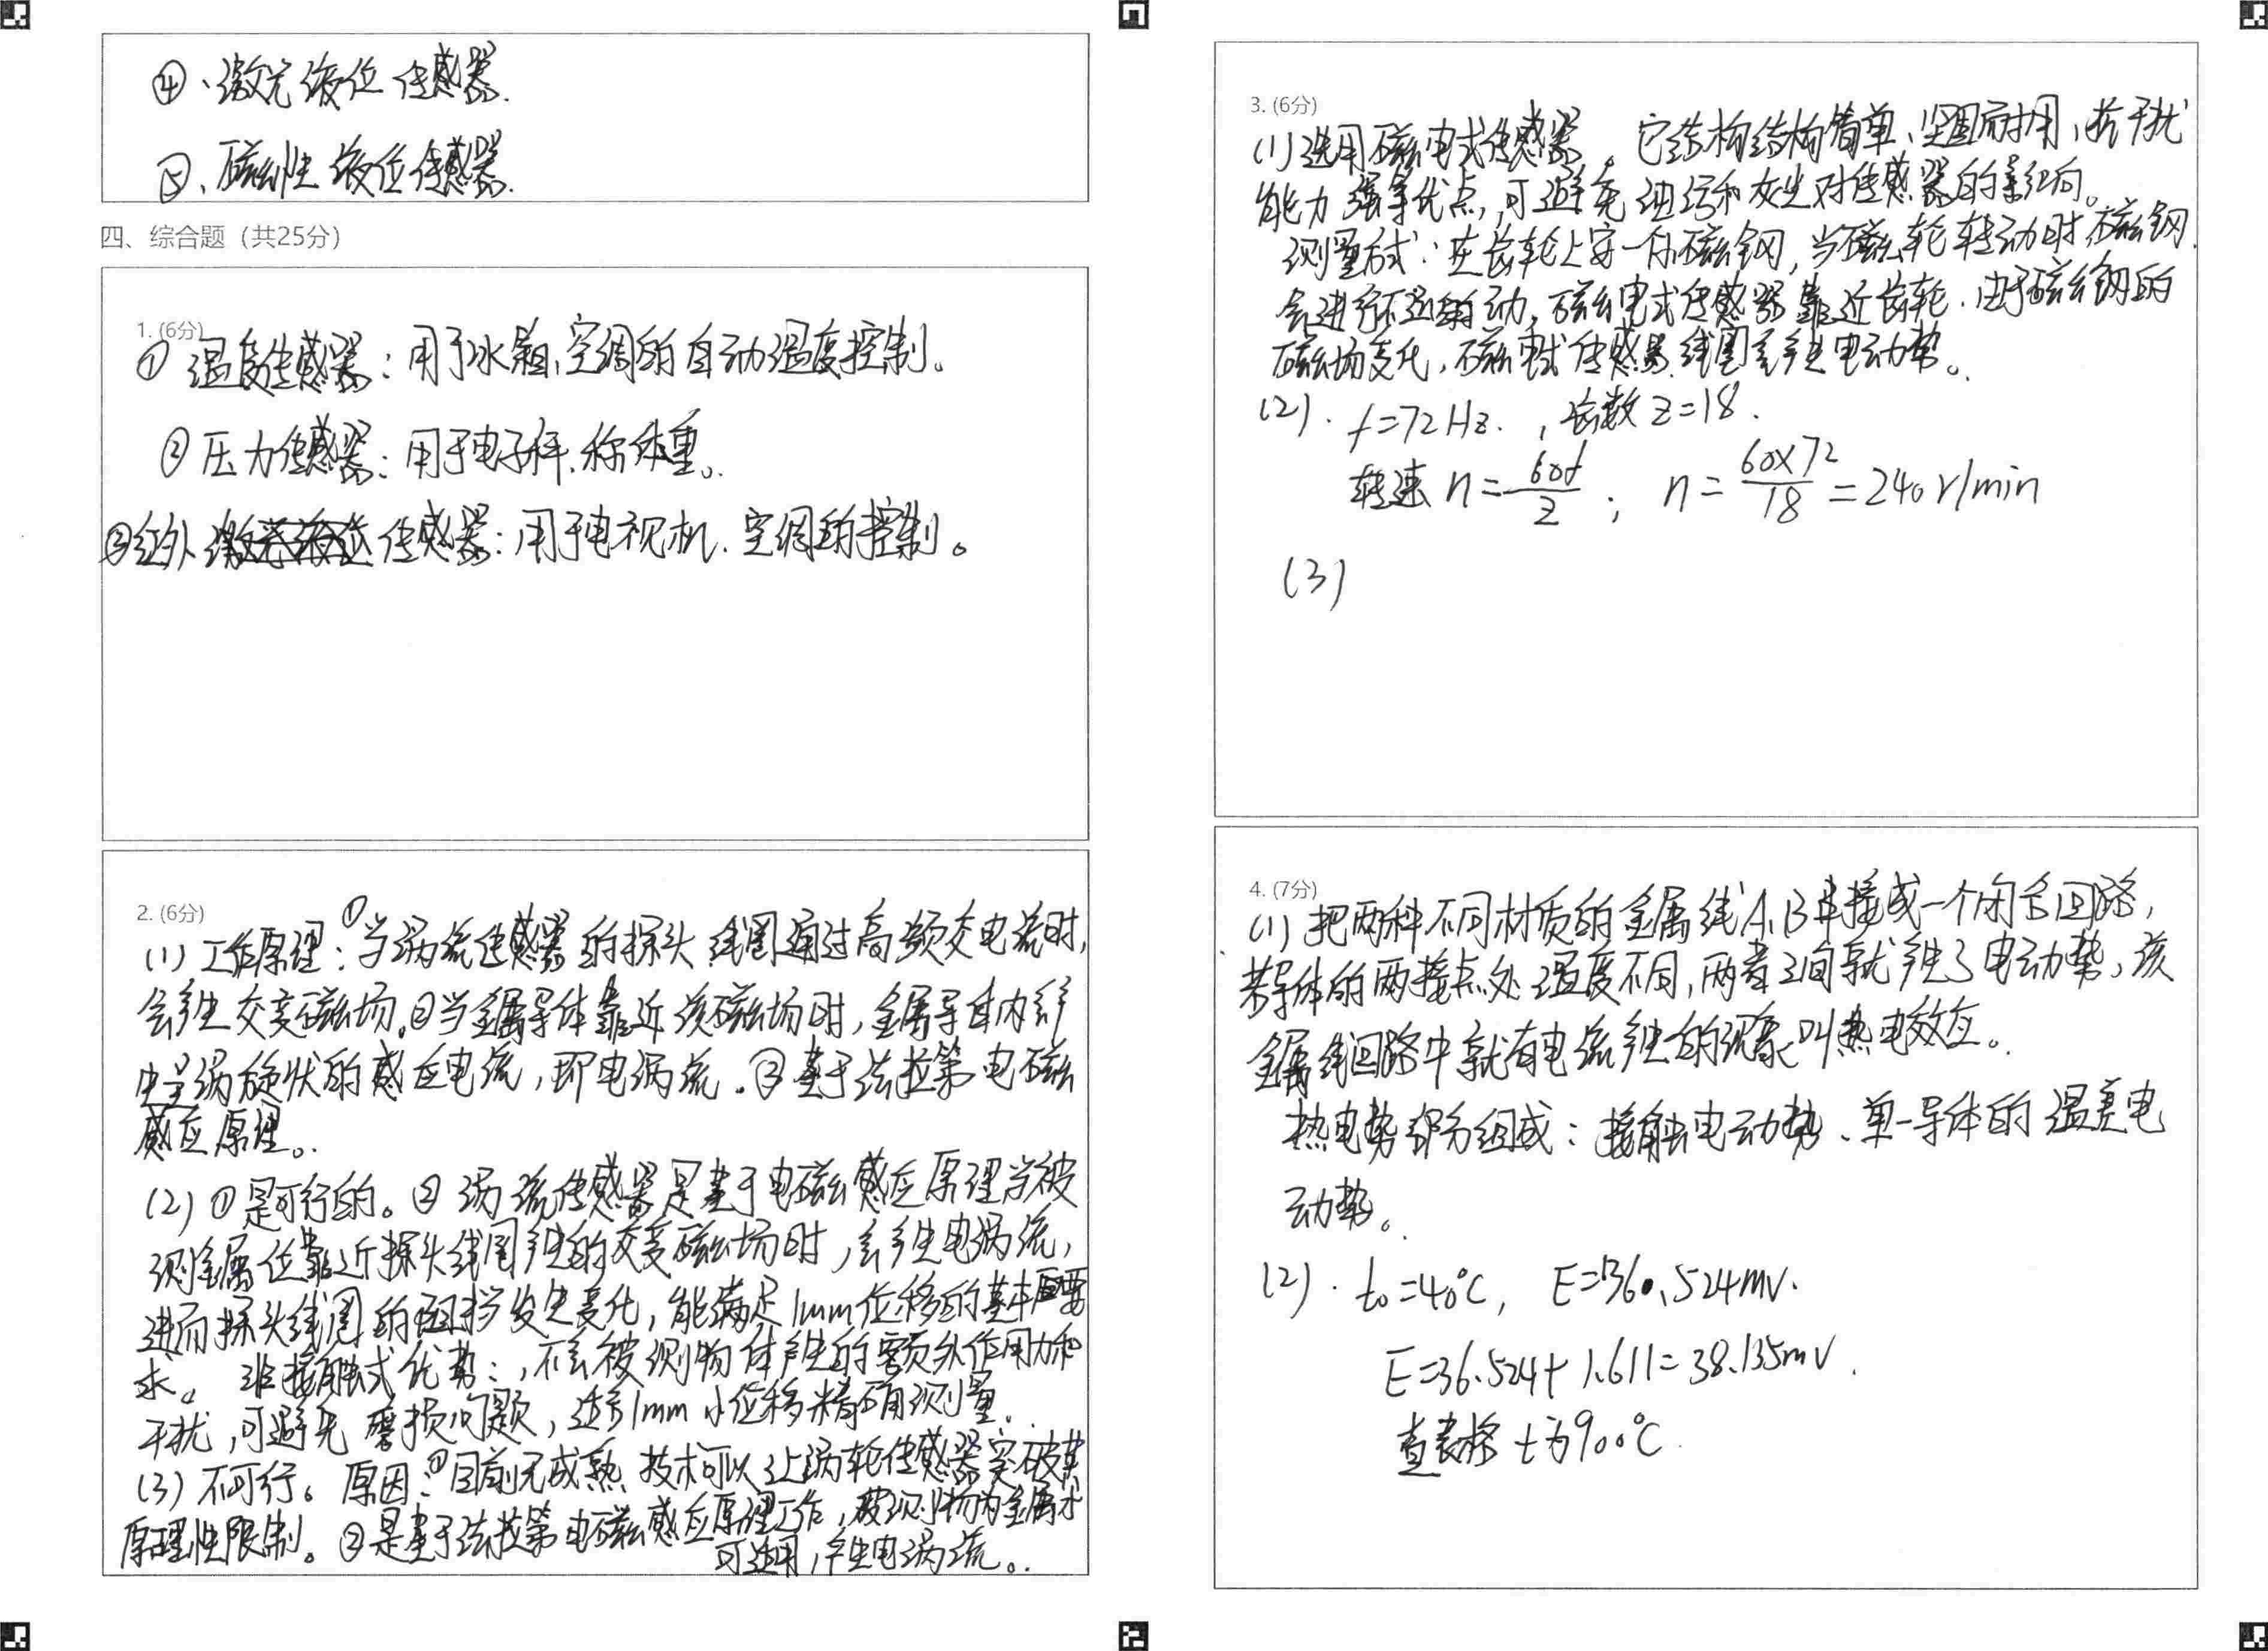 ④、激光液位传感器.
⑤、磁性液位传感器.
四、综合题（共25分）
1. (6分)
① 温度传感器：用于冰箱、空调的自动温度控制。
② 压力传感器：用于电子秤、称体重。
③红外 传感器：用于电视机、空调的控制。
2. (6分)
(1) 工作原理：①当涡流传感器的探头线圈通过高频交电流时,
会产生交变磁场。②当金属导体靠近该磁场时，金属导体内会产
生呈涡旋状的感应电流，即电涡流。③基于法拉第电磁
感应原理。
(2) ①是可行的。② 涡流传感器是基于电磁感应原理当被
测金属位靠近探头线圈产生的交变磁场时，会产生电涡流，
进而探头线圈的阻挡发生变化，能满足1mm位移的基本 要
求。 非接触式优势：，不会被测物体产生的额外作用力和
干扰，可避免磨损问题，适合1mm小位移精确测量。
(3) 不可行。原因：①目前无成熟技术可以让涡轮传感器突破其
原理性限制。②是基于法拉第电磁感应原理工作，被测物为金属才
可适用，产生电涡流。
3. (6分)
(1) 选用磁电式传感器。它结构结构简单、坚固耐用，抗干扰
能力强等优点，可避免油污和灰尘对传感器的影响。
测量方式：在齿轮上安一个磁钢，当磁轮转动时磁钢
会进行 动，磁电式传感器靠近齿轮．由于磁钢的
磁场变化，磁电式传感器线圈会产生电动势。
(2). f=72Hz. ，齿数 z=18.
转速 n=60f/z ； n=60×72/18=240r/min
(3)
4. (7分)
(1) 把两种不同材质的金属线A、B串接成一个闭合回路，
若导体的两接点处温度不同，两者之间就产生了电动势，该
金属线回路中就有电流产生的现象叫热电效应。
热电势部分组成：接触电动势、单一导体的温差电
动势。
(2). t₀=40℃, E=36.524mV.
E=36.524+1.611=38.135mV.
查表格 t为900℃.